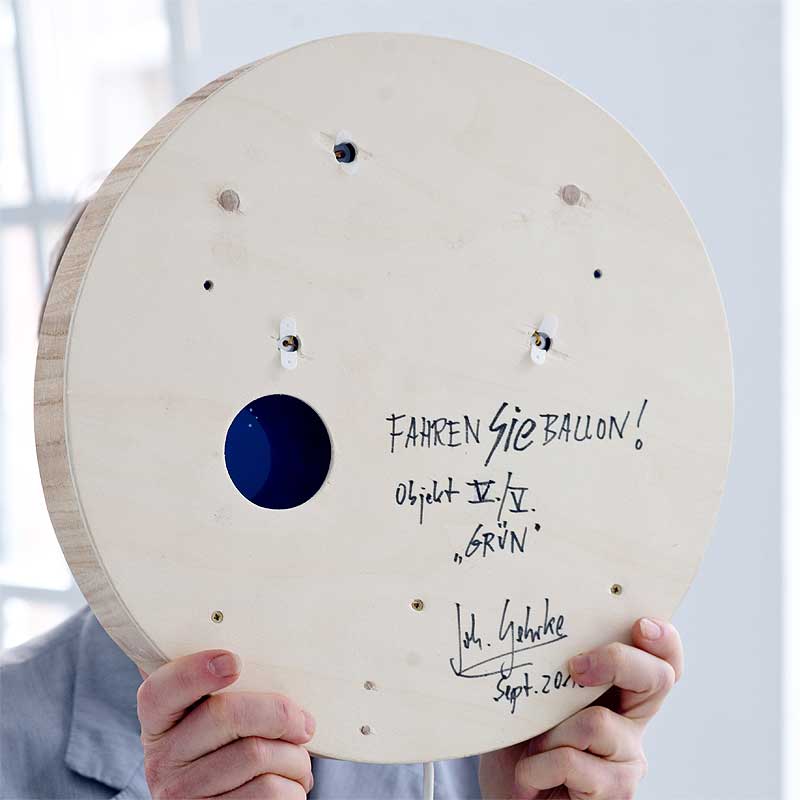 FAHREN Sie BALLON!
Objekt V./V.
„GRÜN"
Joh. Gehrke
Sept.